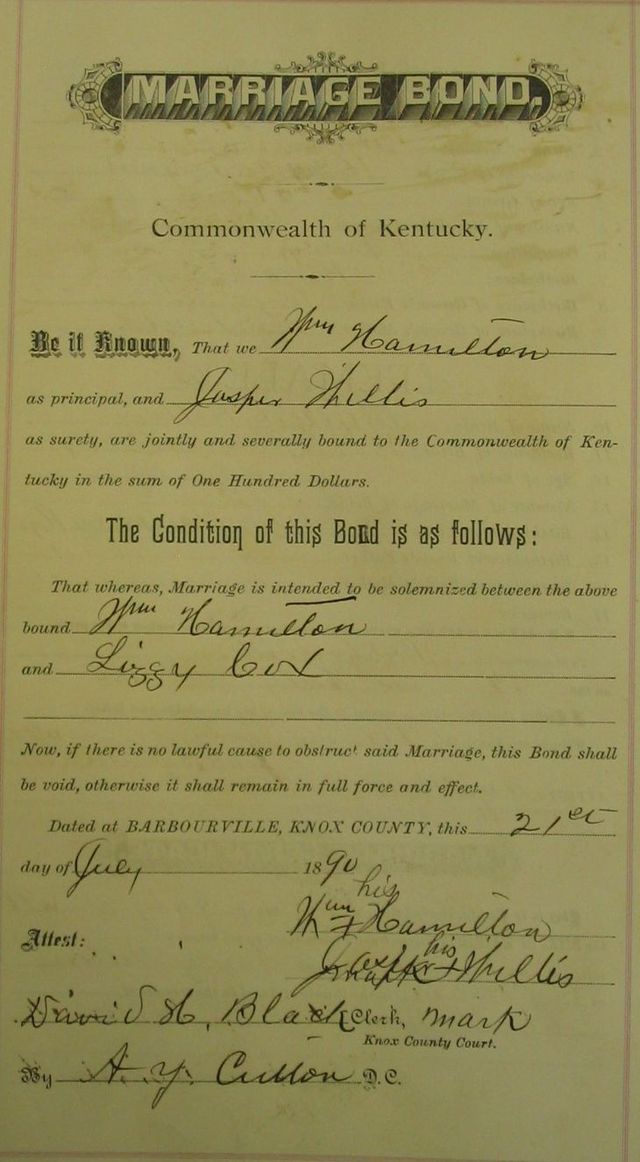 MARRIAGE BOND.
Commonwealth of Kentucky.
Be it Known, That we Wm Hamilton
as principal, and Jasper Willis
as surety, are jointly and severally bound to the Commonwealth of Ken-
tucky in the sum of One Hundred Dollars.
The Condition of this Bond is as follows:
That whereas, Marriage is intended to be solemnized between the above
bound Wm Hamilton
and Lizzy Cox
Now, if there is no lawful cause to obstruct said Marriage, this Bond shall
be void, otherwise it shall remain in full force and effect.
Dated at BARBOURVILLE, KNOX COUNTY, this 21st
day of July 1890
his
Wm + Hamilton
Attest: his
+ Willis
David H. Black Clerk, mark
Knox County Court.
By A. Y. D.C.